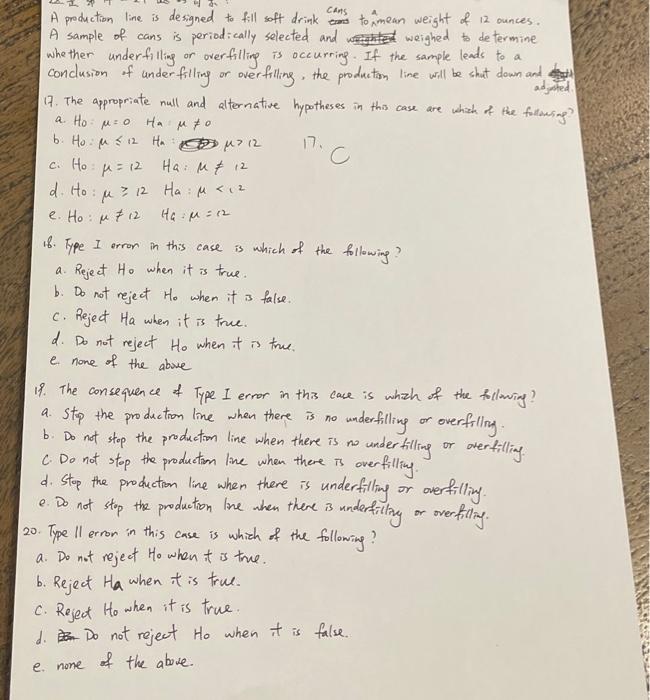 A production line is designed to fill soft drink cans to a mean weight of 12 ounces.
A sample of cans is periodically selected and weighed to determine
whether underfilling or overfilling is occurring. If the sample leads to a
conclusion of underfilling or overfilling, the production line will be shut down and adjusted.
17. The appropriate null and alternative hypotheses in this case are which of the following?
a. Ho: μ = 0 Ha: μ ≠ 0
b. Ho: μ ≤ 12 Ha: μ > 12 17. C
c. Ho: μ = 12 Ha: μ ≠ 12
d. Ho: μ ≥ 12 Ha: μ < 12
e. Ho: μ ≠ 12 Ha: μ = 12
18. Type I error in this case is which of the following?
a. Reject Ho when it is true.
b. Do not reject Ho when it is false.
c. Reject Ha when it is true.
d. Do not reject Ho when it is true.
e. none of the above
19. The consequence of Type I error in this case is which of the following?
a. Stop the production line when there is no underfilling or overfilling.
b. Do not stop the production line when there is no underfilling or overfilling.
c. Do not stop the production line when there is overfilling.
d. Stop the production line when there is underfilling or overfilling.
e. Do not stop the production line when there is underfilling or overfilling.
20. Type II error in this case is which of the following?
a. Do not reject Ho when it is true.
b. Reject Ha when it is true.
c. Reject Ho when it is true.
d. Do not reject Ho when it is false.
e. none of the above.